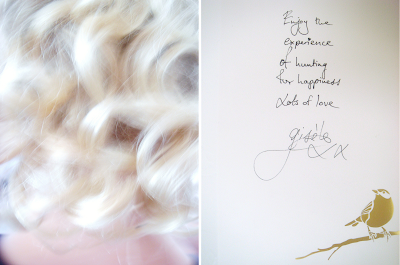 Enjoy the
experience
of hunting
for happiness
Lots of love
gisèle
x x